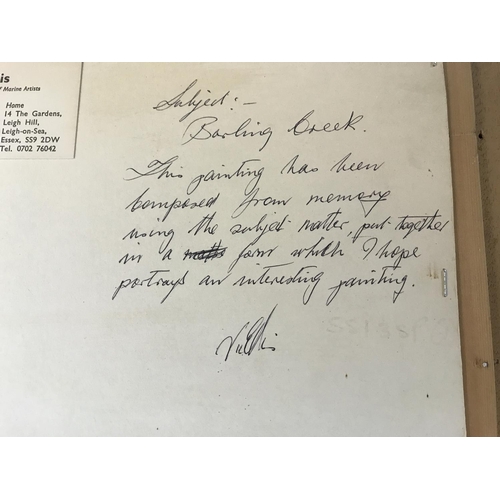 is
f Marine Artists
Home
14 The Gardens,
Leigh Hill,
Leigh-on-Sea,
Essex, SS9 2DW
Tel. 0702 76042
Subject:-
Barling Creek.
This painting has been
composed from memory
using the subject matter, put together
in a form which I hope
portrays an interesting painting.
Vic Ellis